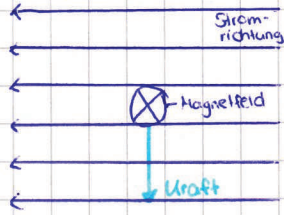 Strom-
richtung
Magnetfeld
Kraft